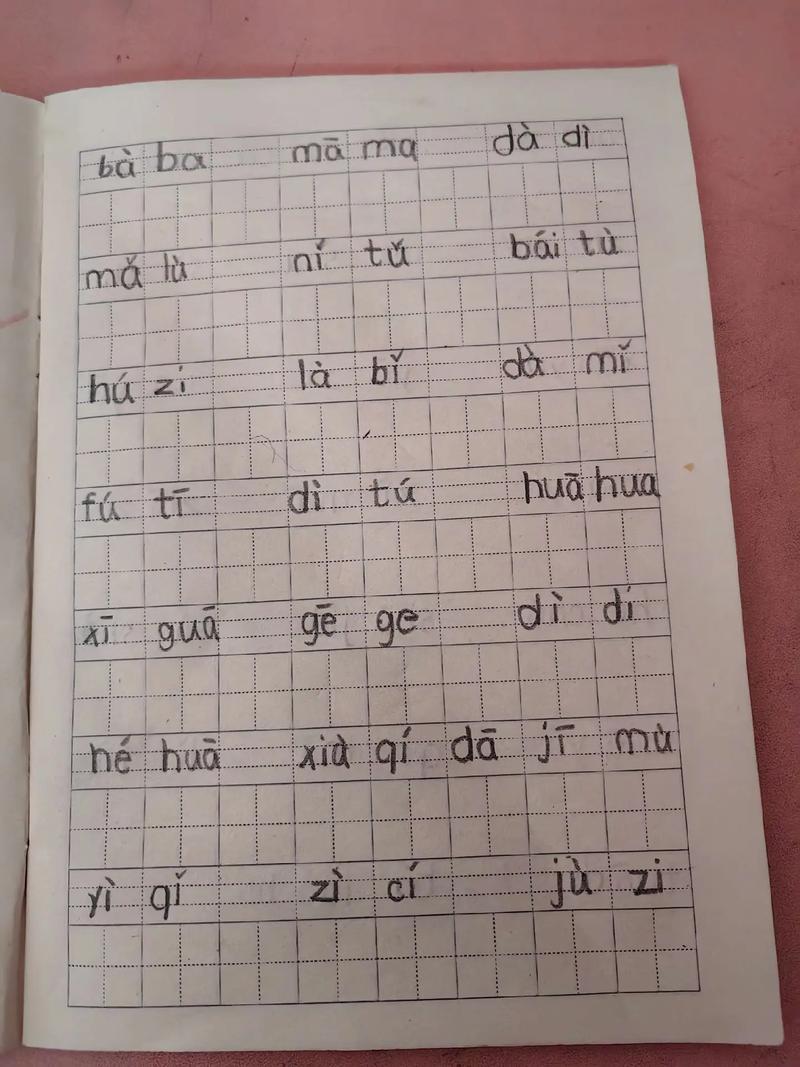 bà ba mā ma dà dì
mǎ lù ní tǔ bái tù
hú zí là bǐ dà mǐ
fú tī dì tú huā hua
xī guā gē ge dì dí
hé huā xià qí dā jī mù
yì qǐ zì cí jù zi